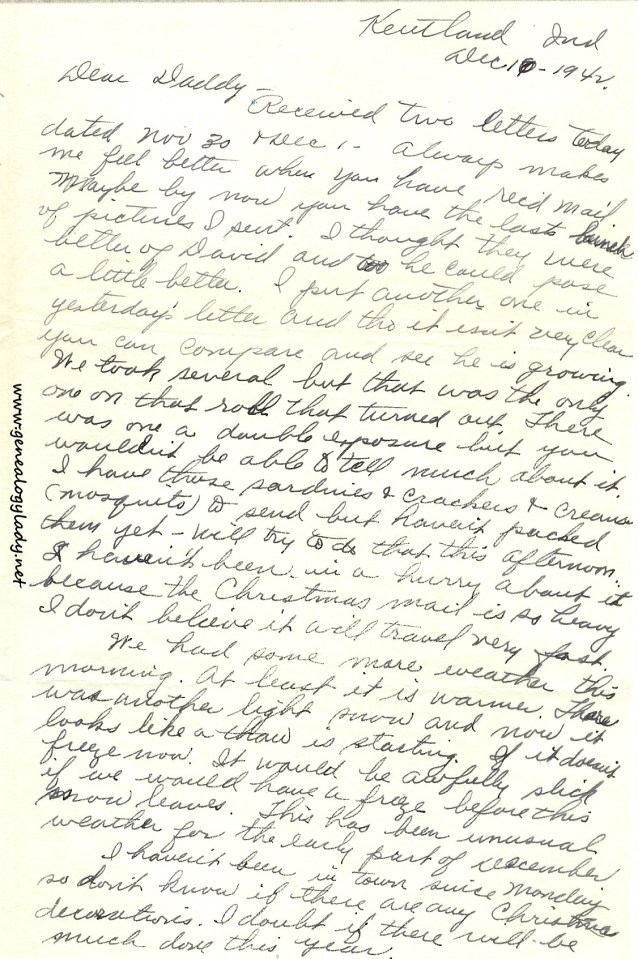 Kentland Ind
Dec 10 - 1942.
Dear Daddy -
Received two letters today
dated Nov 30 & Dec 1 - Always makes
me feel better when you have rec'd mail
Maybe by now you have the last bunch
of pictures I sent. I thought they were
better of David and he could pose
a little better. I put another one in
yesterday's letter and tho it isn't very clear
you can compare and see he is growing.
We took several but that was the only
one on that roll that turned out. There
was one a double exposure but you
wouldn't be able to tell much about it.
I have those sardines & crackers & creams
(mosquito) to send but haven't packed
them yet - will try to do that this afternoon.
I haven't been in a hurry about it
because the Christmas mail is so heavy
I don't believe it will travel very fast.
We had some more weather this
morning. At least it is warmer. There
was another light snow and now it
looks like a thaw is starting. If it doesn't
freeze now. It would be awfully slick
if we would have a freeze before this
snow leaves. This has been unusual
weather for the early part of December
I haven't been in town since Monday
so don't know if there are any Christmas
decorations. I doubt if there will be
much done this year.
www.genealogylady.net